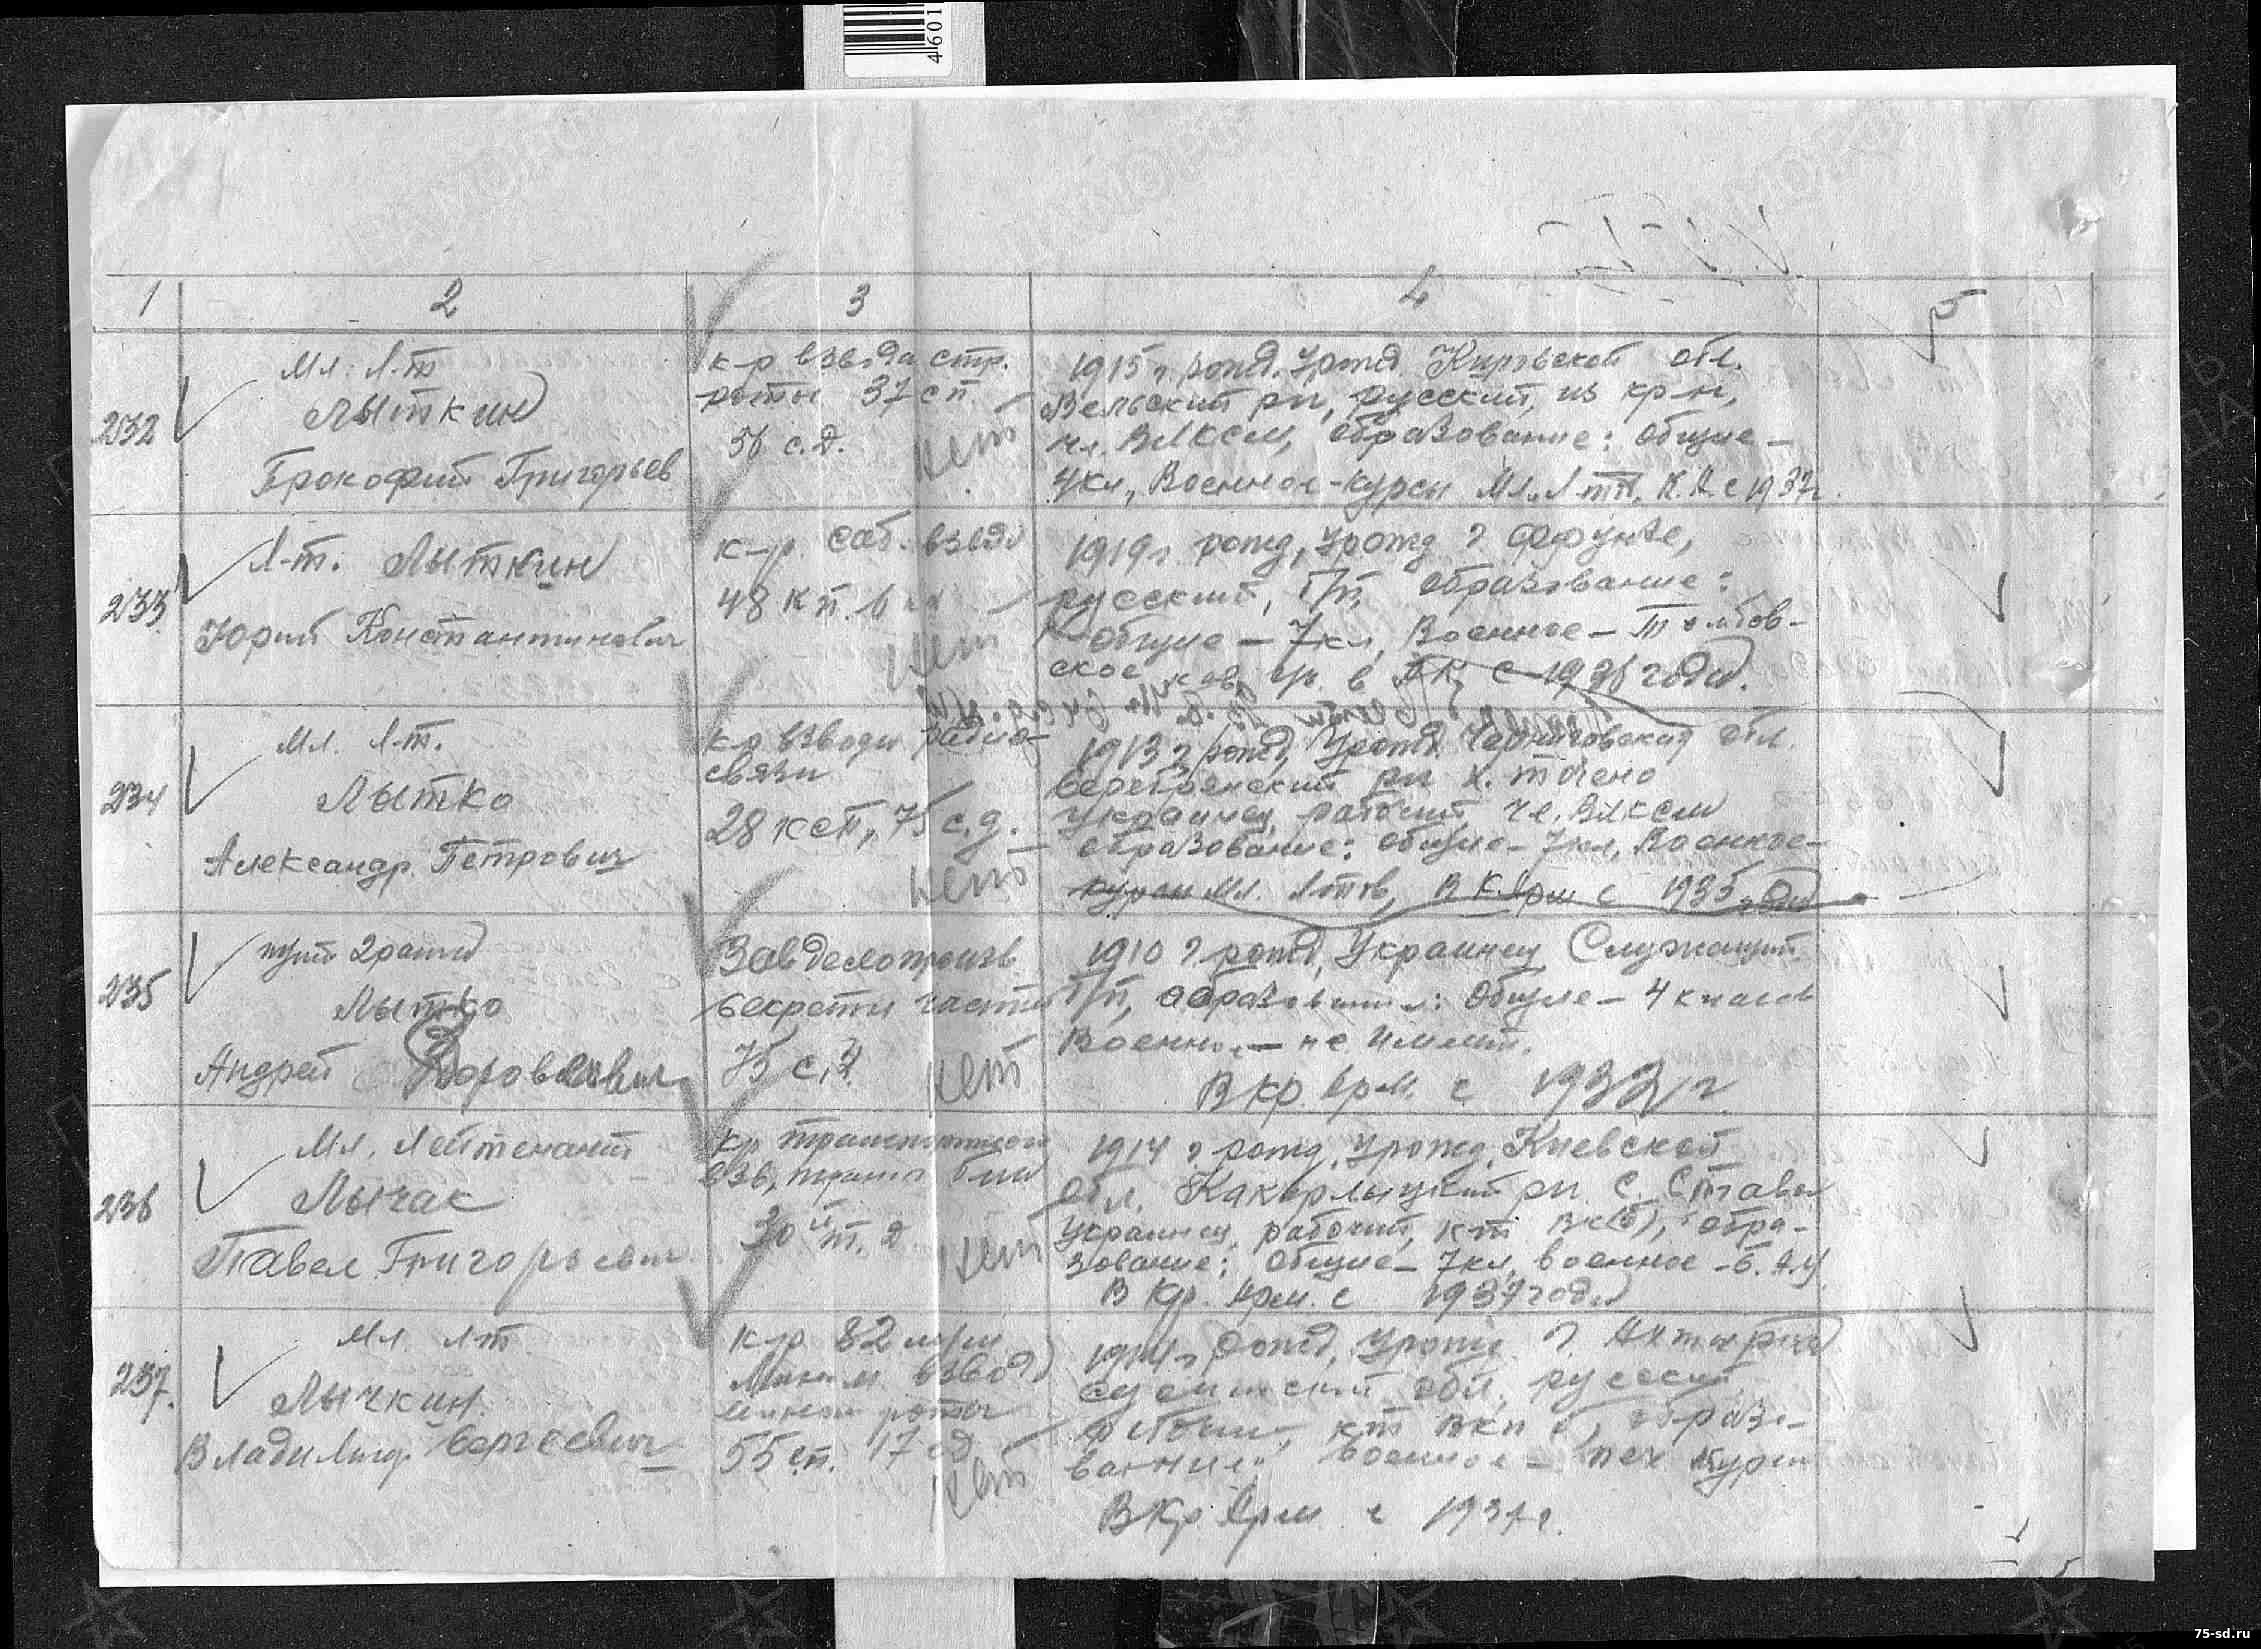 4601
1 2 3 4 5
232
Мл. Л-т
Лыткин
Прокофий Григорьев
к-р взвода стр.
роты 37 сп
56 с.д.
нет
1915 г рожд. Урожд. Кировской обл.
Вельский р-н, русский, из кр-н,
чл. ВЛКСМ, образование: общее –
4 кл., Военное - курсы Мл. Л-тов, К.А. с 1937г.
233
Л-т. Лыткин
Юрий Константинович
к-р. саб. взвода
48 кп.
нет
1919г рожд, урожд г Фрунзе,
русский, б/п, образование:
общее – 7 кл, Военное – Тамбов-
ское кав. уч. в КА с 1936 года.
234
Мл. Л-т.
Лытко
Александр Петрович
к-р взвода радио-
связи
28 ксп, 75 с.д.
нет
1913 г рожд, Урожд. Черниговский обл.
Серебрянский р-н х.
украинец, рабочий чл. ВЛКСМ
образование: общее – 7 кл, Военное –
курсы Мл. Л-тов, в К. Арм с 1935 года
235
Лытко
Андрей
Завделопроизв.
секретн части
75 с.д.
нет
1910 г рожд, Украинец Служащий
б/п, образование: Общее – 4 класса
Военное – не имеет.
В Кр. Арм. с 1932 г
236
Мл. Лейтенант
Лычак
Павел Григорьевич
к-р транспортного
взв,
30й т. д
нет
1914 г. рожд, Урожд. Киевской
обл. Кагарлыцкий р-н с. Ставы
Украинец, рабочий, к-т ВК(б), обра-
зование: общее – 7 кл, военное - Б.А.У
В Кр. Арм. с 1937 года
237.
Мл. л-т
Лычкин
Владимир Сергеевич
к-р 82 м/м
Мином. взвода
роты
55 сп. 17 сд
нет
1914 г. рожд, Урожд. г. Ахтырка
Сумский обл, русский
рабочий, к-т ВКП б, образо-
вание: Военное – пех курсы
В Кр Арм с 1937 г.
75-sd.ru